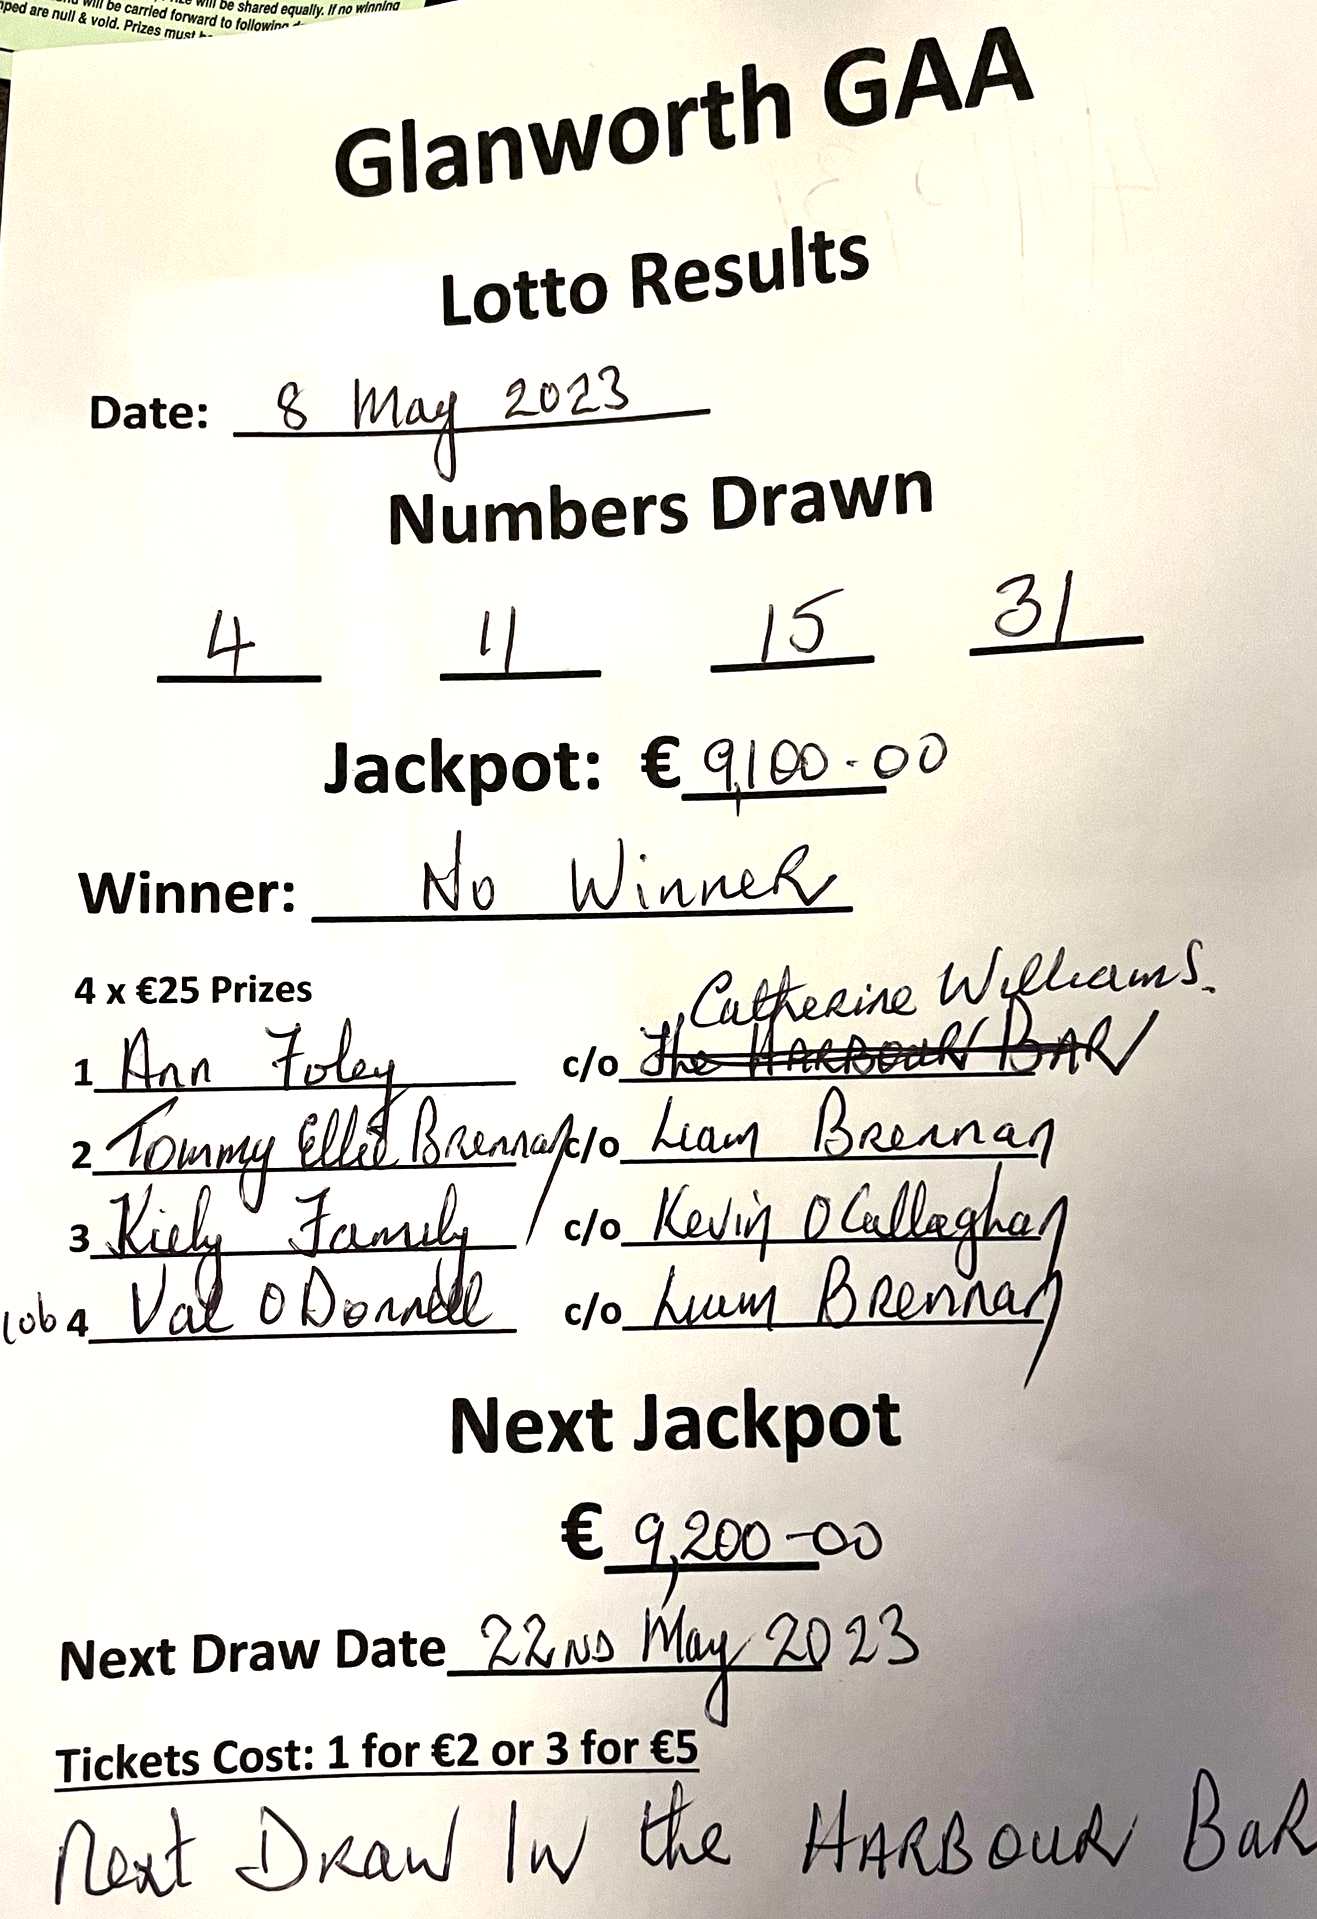 will be shared equally. If no winning
will be carried forward to following
are null & void. Prizes must
Glanworth GAA
Lotto Results
Date: 8 May 2023
Numbers Drawn
4 11 15 31
Jackpot: € 9,100.00
Winner: No Winner
4 x €25 Prizes
Catherine Williams.
1 Ann Foley c/o The HARBOUR BAR
2 Tommy Ellie Brennan c/o Liam Brennan
3 Kiely Family c/o Kevin O Callaghan
4 Val O Donnell c/o Liam Brennan
Next Jackpot
€ 9,200-00
Next Draw Date 22ND May 2023
Tickets Cost: 1 for €2 or 3 for €5
Next DRAW IN the HARBOUR BAR